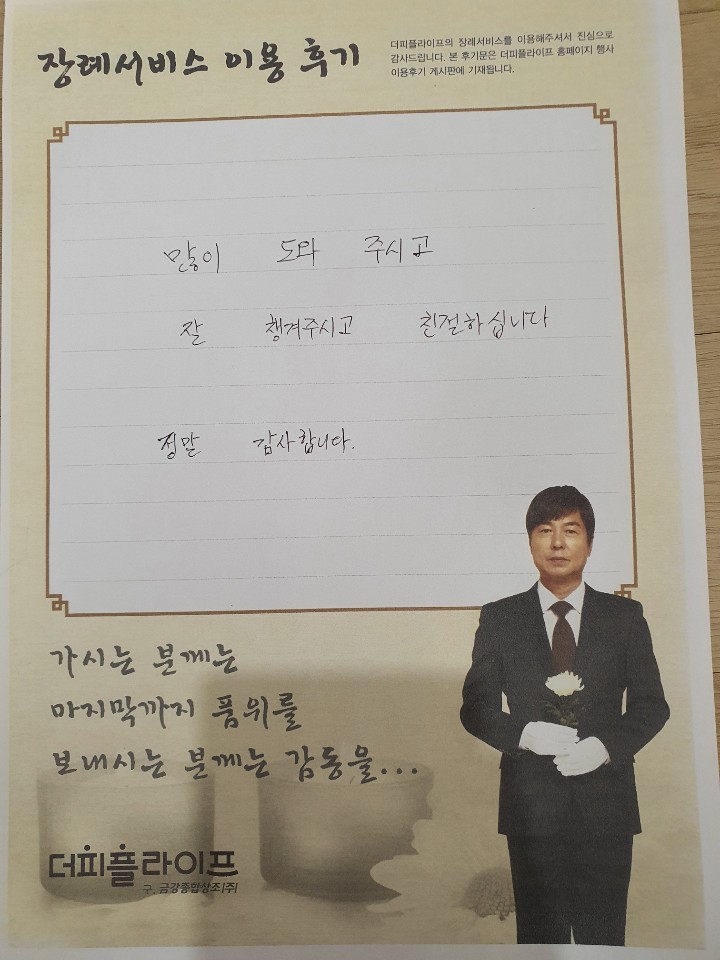 장례서비스 이용 후기
더피플라이프의 장례서비스를 이용해주셔서 진심으로
감사드립니다. 본 후기문은 더피플라이프 홈페이지 행사
이용후기 게시판에 기재됩니다.
많이 도와 주시고
잘 챙겨주시고 친절하십니다
정말 감사합니다.
가시는 분께는
마지막까지 품위를
보내시는 분께는 감동을...
더피플라이프
구. 금강종합상조(주)